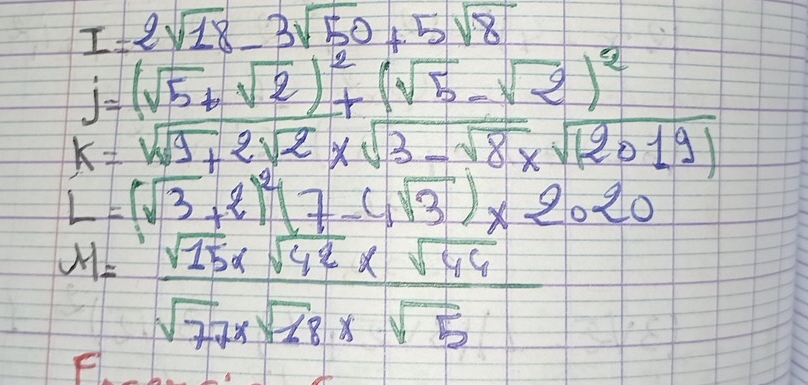 I = 2√18 - 3√50 + 5√8
j = (√5 + √2)² + (√5 - √2)²
K = √(√9 + 2√2) × √(3 - √8) × √(2019)
L = (√3 + 2)² (7 - 4√3) × 2020
M = (√15 × √42 × √44) / (√77 × √18 × √5)